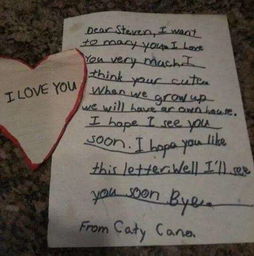 Dear Steven, I want
to mary you I Love
You very much I
think your cute
When we grow up
we will have ar own house.
I hope I see you
soon. I hope you like
this letter. Well I'll see
you soon Bye
From Caty Cano.
I LOVE YOU